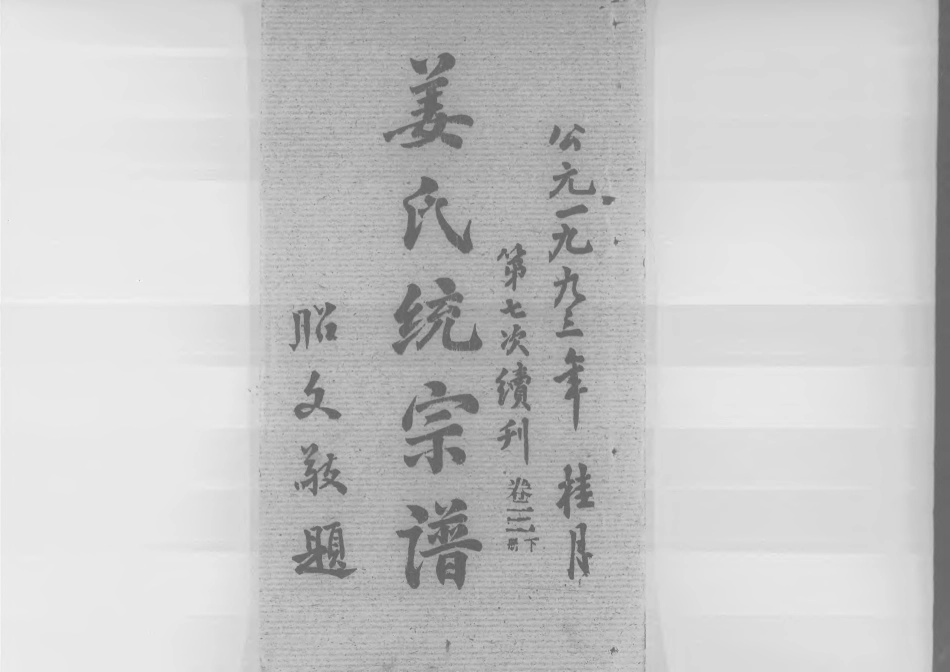 公元一九九三年 桂月
第七次續刊 卷 下册
姜氏统宗谱
昭文敬題